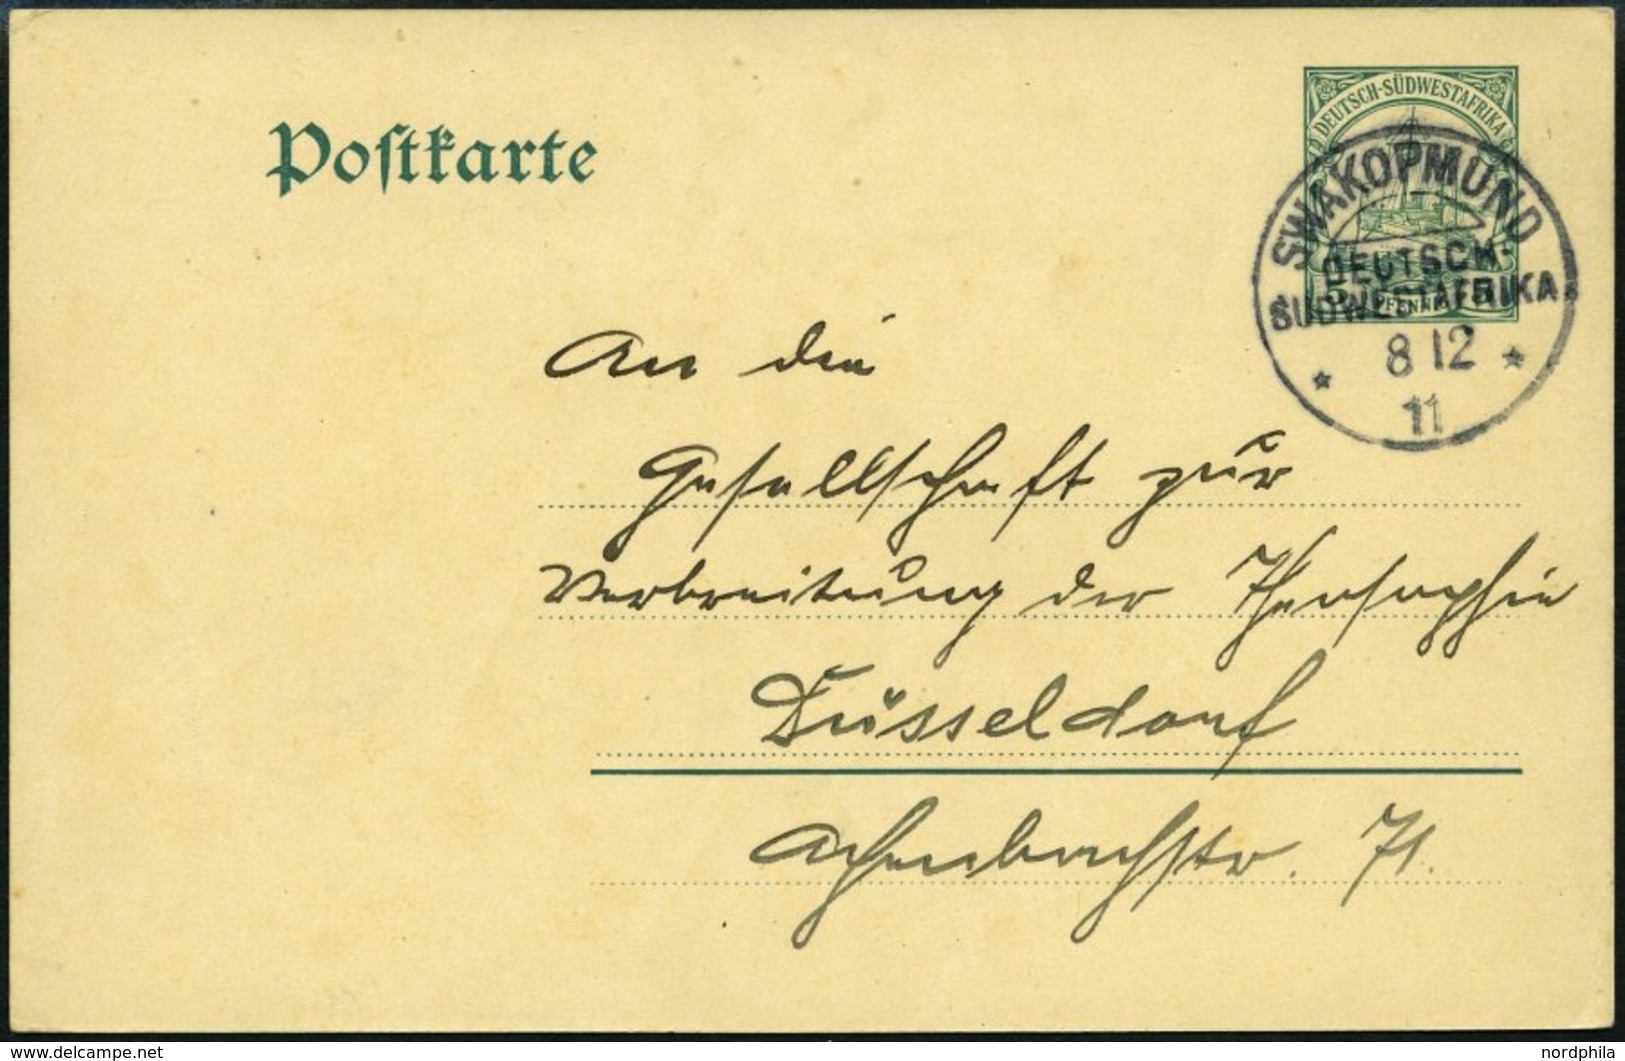 Postkarte
DEUTSCH-SÜDWESTAFRIKA
5 PFENNIG 5
SWAKOPMUND
DEUTSCH-
SÜDWESTAFRIKA
8 12
11
An die
Gesellschaft zur
Verbreitung der Theosophie
Düsseldorf
Achenbachstr. 71.
delcampe.net
nordphila